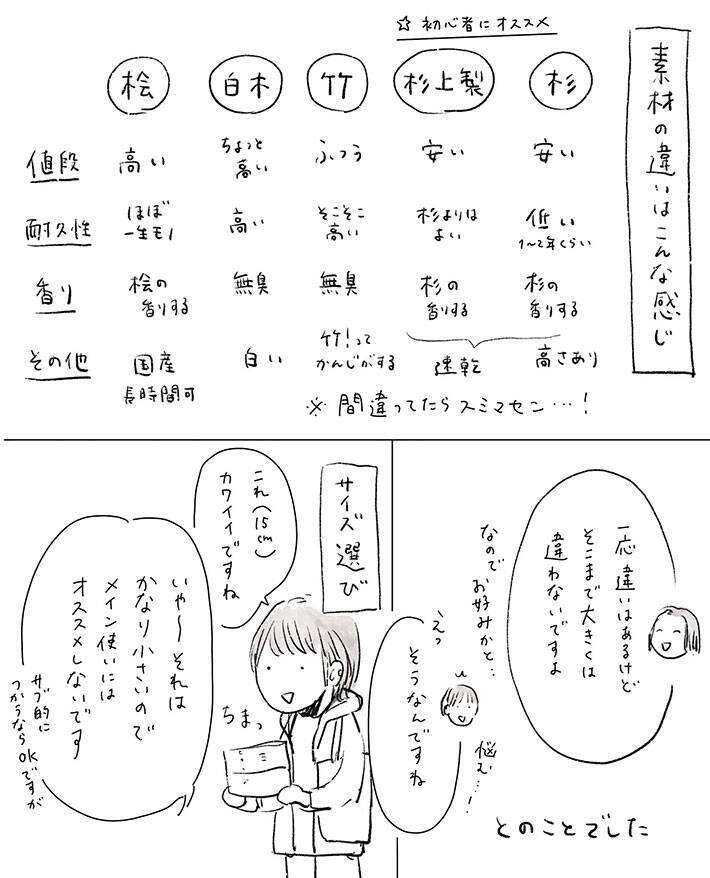 素材の違いはこんな感じ
☆初心者にオススメ
桧 白木 竹 杉上製 杉
値段 高い ちょっと高い ふつう 安い 安い
耐久性 ほぼ一生モノ 高い そこそこ高い 杉よりはよい 低い 1〜2年くらい
香り 桧の香りする 無臭 無臭 杉の香りする 杉の香りする
その他 国産 長時間可 白い 竹!ってかんじがする 速乾 高さあり
※間違ってたらスミマセン…!
一応違いはあるけど
そこまで大きくは
違わないですよ
なのでお好みかと…
えっ
そうなんですね
悩む…!
とのことでした
サイズ選び
これ(15cm)
カワイイですね
ちまっ
いや〜それは
かなり小さいので
メイン使いには
オススメしないです
サブ的に
つかうならOKですが